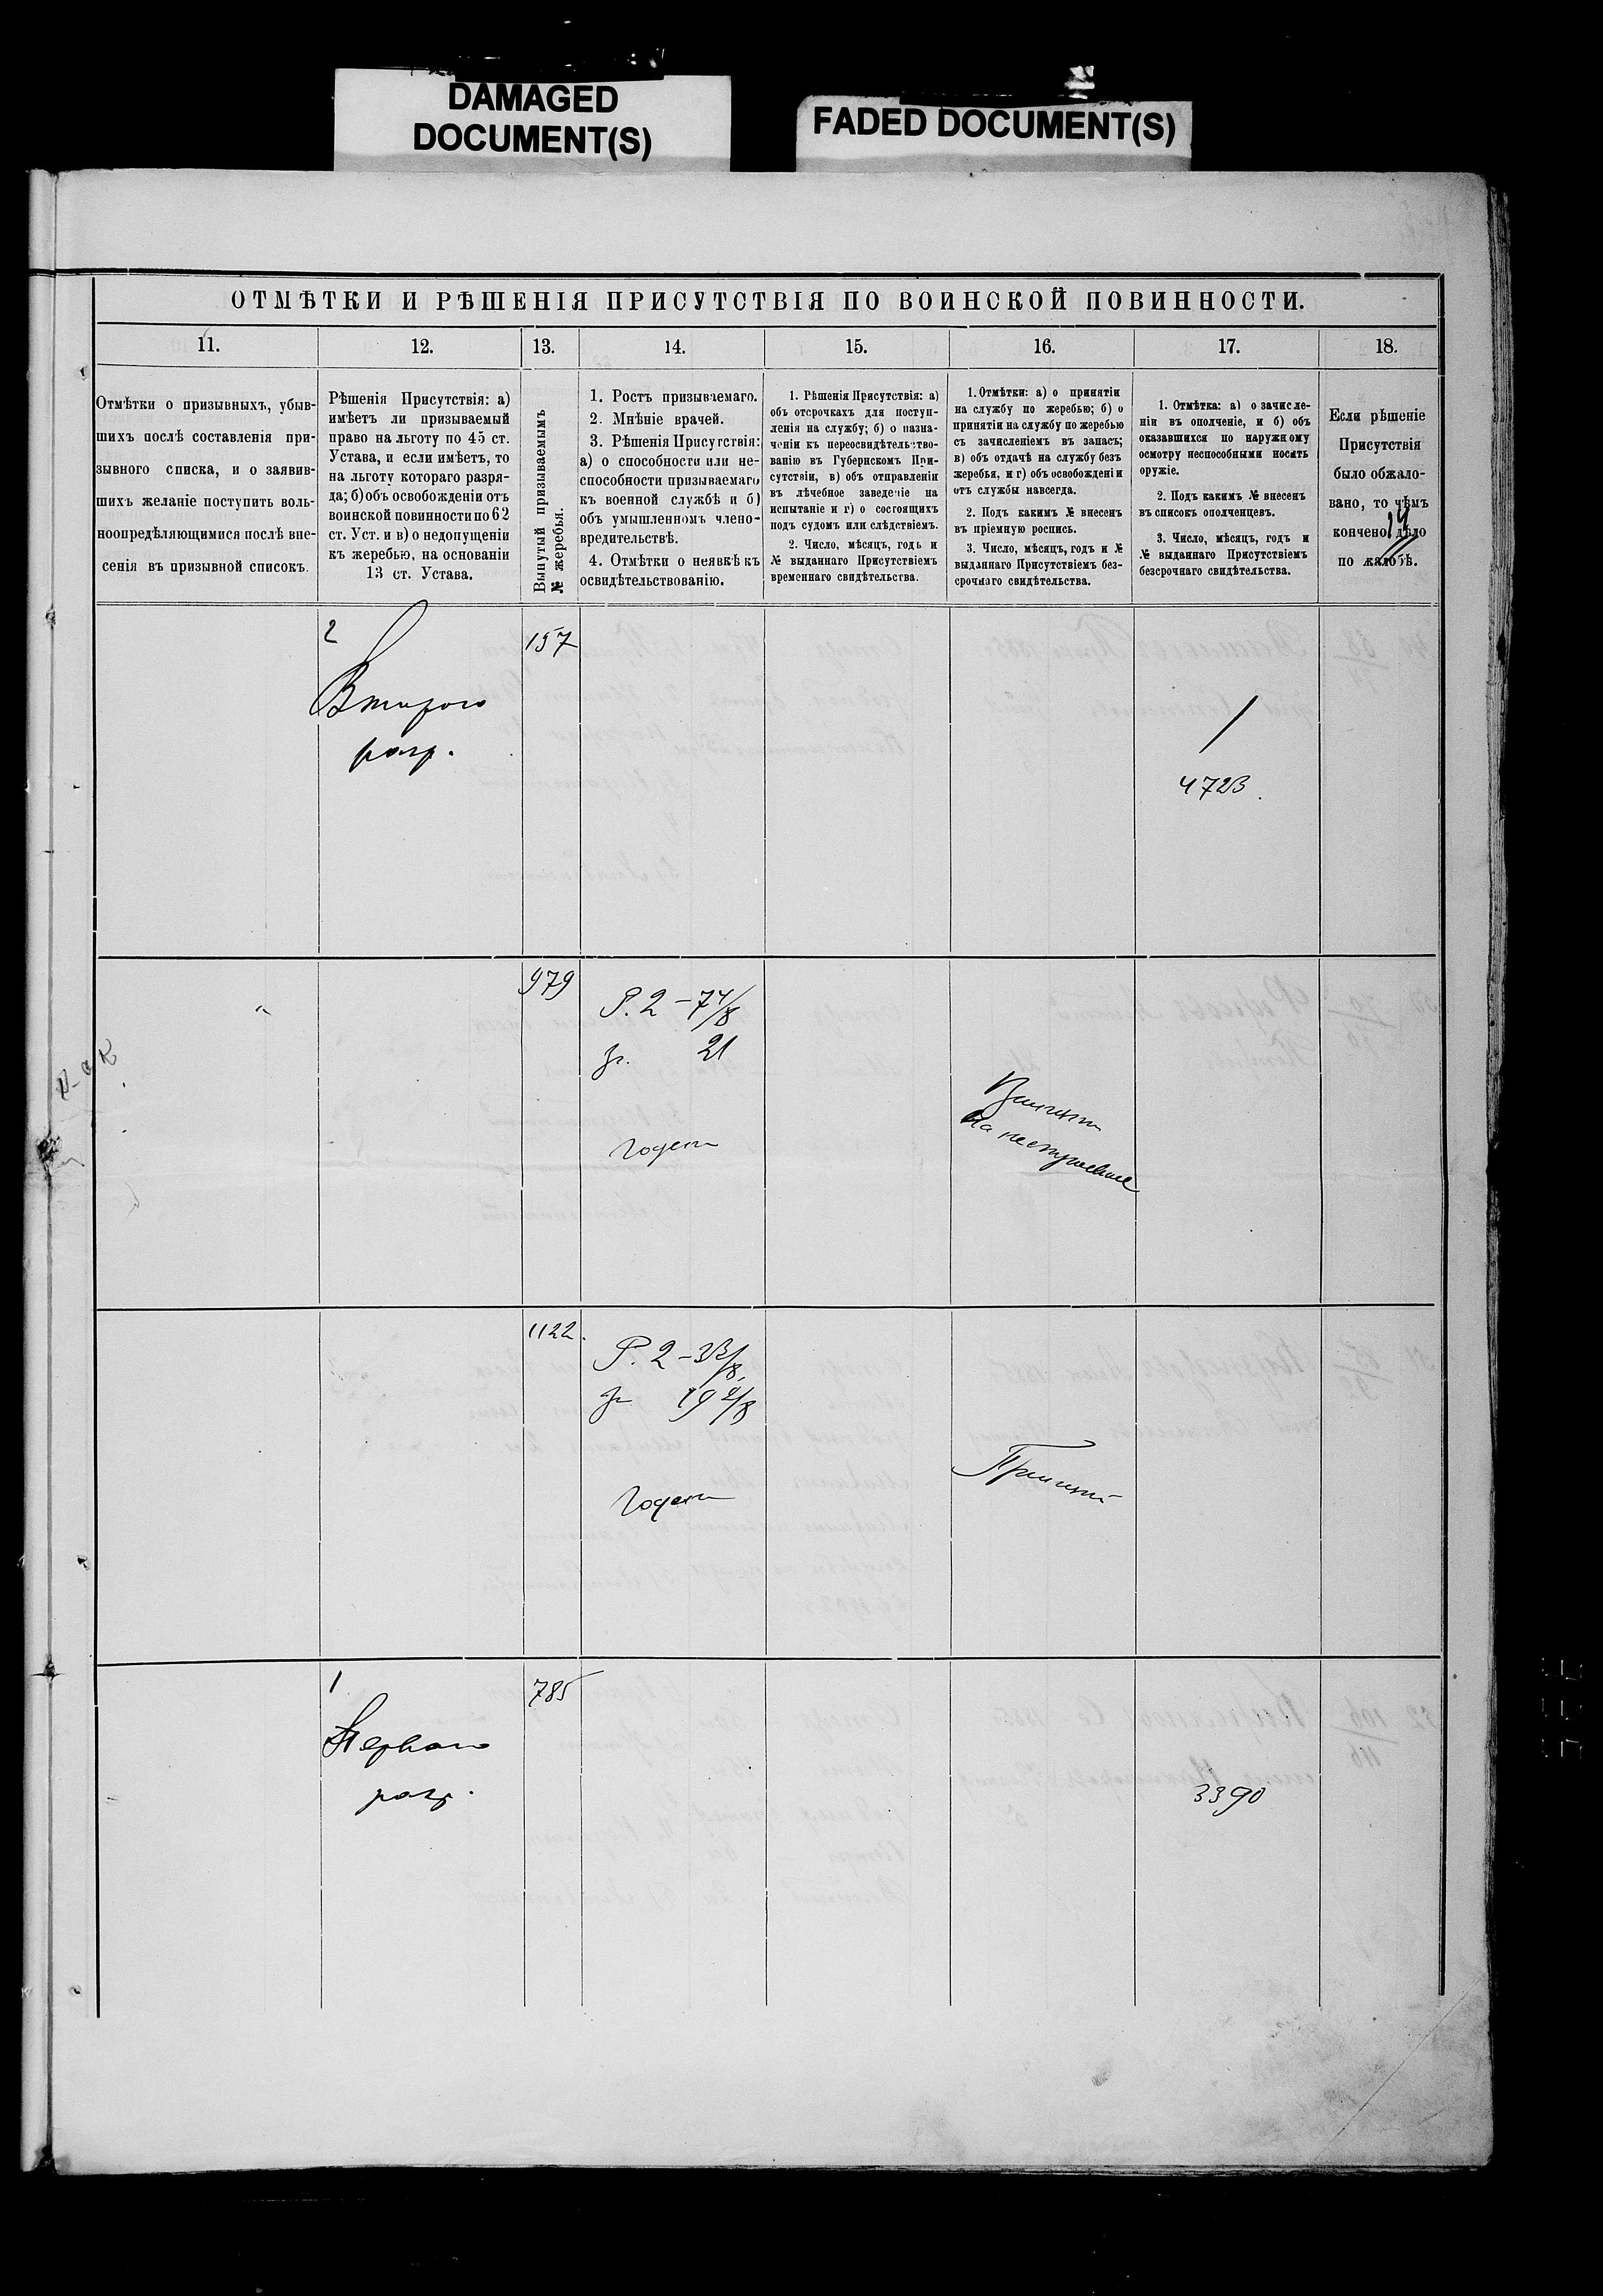 DAMAGED
DOCUMENT(S)
FADED DOCUMENT(S)
ОТМѢТКИ И РѢШЕНІЯ ПРИСУТСТВІЯ ПО ВОИНСКОЙ ПОВИННОСТИ.
11.
12.
13.
14.
15.
16.
17.
18.
Отмѣтки о призывныхъ, убыв-
шихъ послѣ составленія при-
зывного списка, и о заявив-
шихъ желаніе поступить воль-
ноопредѣляющимися послѣ вне-
сенія въ призывной списокъ.
Рѣшенія Присутствія: а)
имѣетъ ли призываемый
право на льготу по 45 ст.
Устава, и если имѣетъ, то
на льготу котораго разря-
да; б) объ освобожденіи отъ
воинской повинности по 62
ст. Уст. и в) о недопущеніи
къ жеребью, на основаніи
13 ст. Устава.
Вынутый призываемымъ
№ жеребья.
1. Ростъ призываемаго.
2. Мнѣніе врачей.
3. Рѣшенія Присутствія:
а) о способности или не-
способности призываемаго
къ военной службѣ и б)
объ умышленномъ члено-
вредительствѣ.
4. Отмѣтки о неявкѣ къ
освидѣтельствованію.
1. Рѣшенія Присутствія: а)
объ отсрочкахъ для поступ-
ленія на службу; б) о назна-
ченіи къ переосвидѣтельство-
ванію въ Губернскомъ При-
сутствіи, в) объ отправленіи
въ лѣчебное заведеніе на
испытаніе и г) о состоящихъ
подъ судомъ или слѣдствіемъ.
2. Число, мѣсяцъ, годъ и
№ выданнаго Присутствіемъ
временнаго свидѣтельства.
1. Отмѣтки: а) о принятіи
на службу по жеребью; б) о
принятіи на службу по жеребью
съ зачисленіемъ въ запасъ;
в) объ отдачѣ на службу безъ
жеребья, и г) объ освобожденіи
отъ службы навсегда.
2. Подъ какимъ № внесенъ
въ пріемную роспись.
3. Число, мѣсяцъ, годъ и №
выданнаго Присутствіемъ без-
срочнаго свидѣтельства.
1. Отмѣтка: а) о зачисле-
ніи въ ополченіе, и б) объ
оказавшихся по наружному
осмотру неспособными носить
оружіе.
2. Подъ какимъ № внесенъ
въ списокъ ополченцевъ.
3. Число, мѣсяцъ, годъ и
№ выданнаго Присутствіемъ
безсрочнаго свидѣтельства.
Если рѣшеніе
Присутствія
было обжало-
вано, то чѣмъ
кончено дѣло
по жалобѣ.
2
Второго
разр.
157
4723.
979
Р. 2 – 7 4/8
гр. 21
Годенъ
1122.
Р. 2 – 3 3/8,
гр 19 4/8
Годенъ
Принятъ
1
Перваго
разр.
785
3390